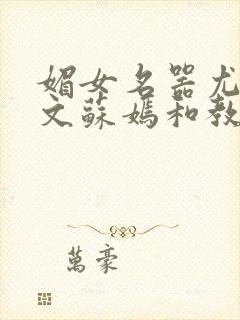 媚女名器尤
文蘇嫣和教
萬豪